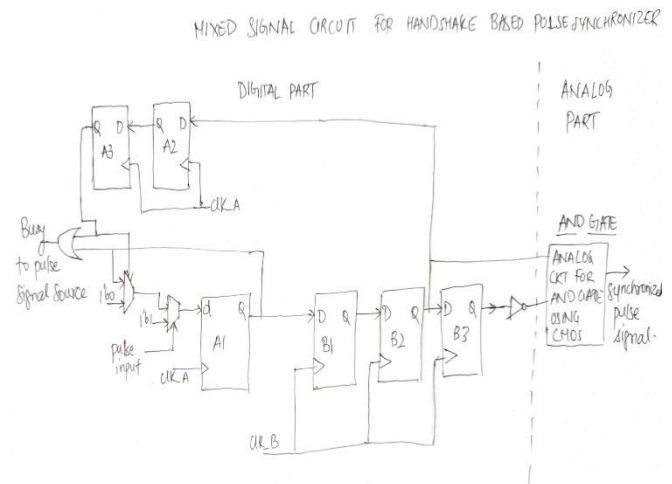 MIXED SIGNAL CIRCUIT FOR HANDSHAKE BASED PULSE SYNCHRONIZER
DIGITAL PART
ANALOG
PART
Q D
A3
Q D
A2
clk_A
Busy
to pulse
signal source
1'b0
1'b1
pulse
input
clk_A
d Q
A1
D Q
B1
D Q
B2
D Q
B3
clk_B
AND GATE
ANALOG
CKT FOR
AND GATE
USING
CMOS
synchronized
pulse
signal.